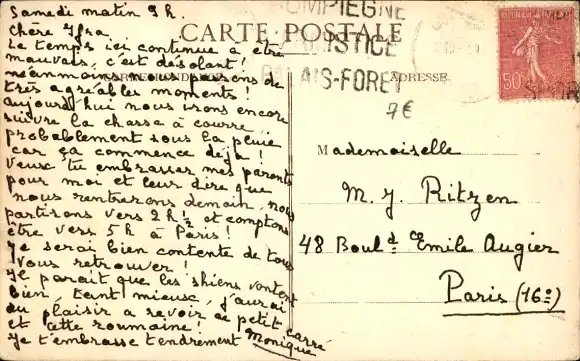 Samedi matin 9 h.
Chère Yfra,
Le temps ici continue à être
mauvais, c'est désolant!
néanmoins nous passons de
très agréables moments!
aujourd'hui nous irons encore
suivre la chasse à courre,
probablement sous la pluie
car ça commence déjà!
Veux tu embrasser mes parents
pour moi et leur dire que
nous rentrerons demain, nous
partirons vers 2h½ et comptons
être vers 5 h à Paris!
Je serai bien contente de tous
vous retrouver!
Il parait que les chiens vontent
bien, tant mieux, j'aurai
du plaisir a revoir ce petit carré
et cette roumaine!
Je t'embrasse tendrement Monique
CARTE POSTALE
COMPIÈGNE
ARMISTICE
PALAIS-FORET
CORRESPONDANCE
ADRESSE
7€
RÉPUBLIQUE FRANÇAISE
50c
Mademoiselle
M. Y. Ritzen
48 Boul.d Emile Augier
Paris (16e)